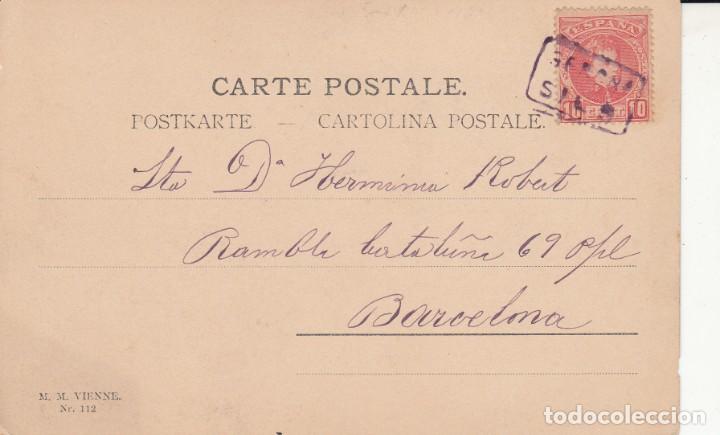 ESPAÑA
CARTE POSTALE.
POSTKARTE — CARTOLINA POSTALE.
10 10
Sta Dª Herminia Robert
Rambla Cataluña 69 ppl
Barcelona
M. M. VIENNE.
Nr. 112
todocoleccion